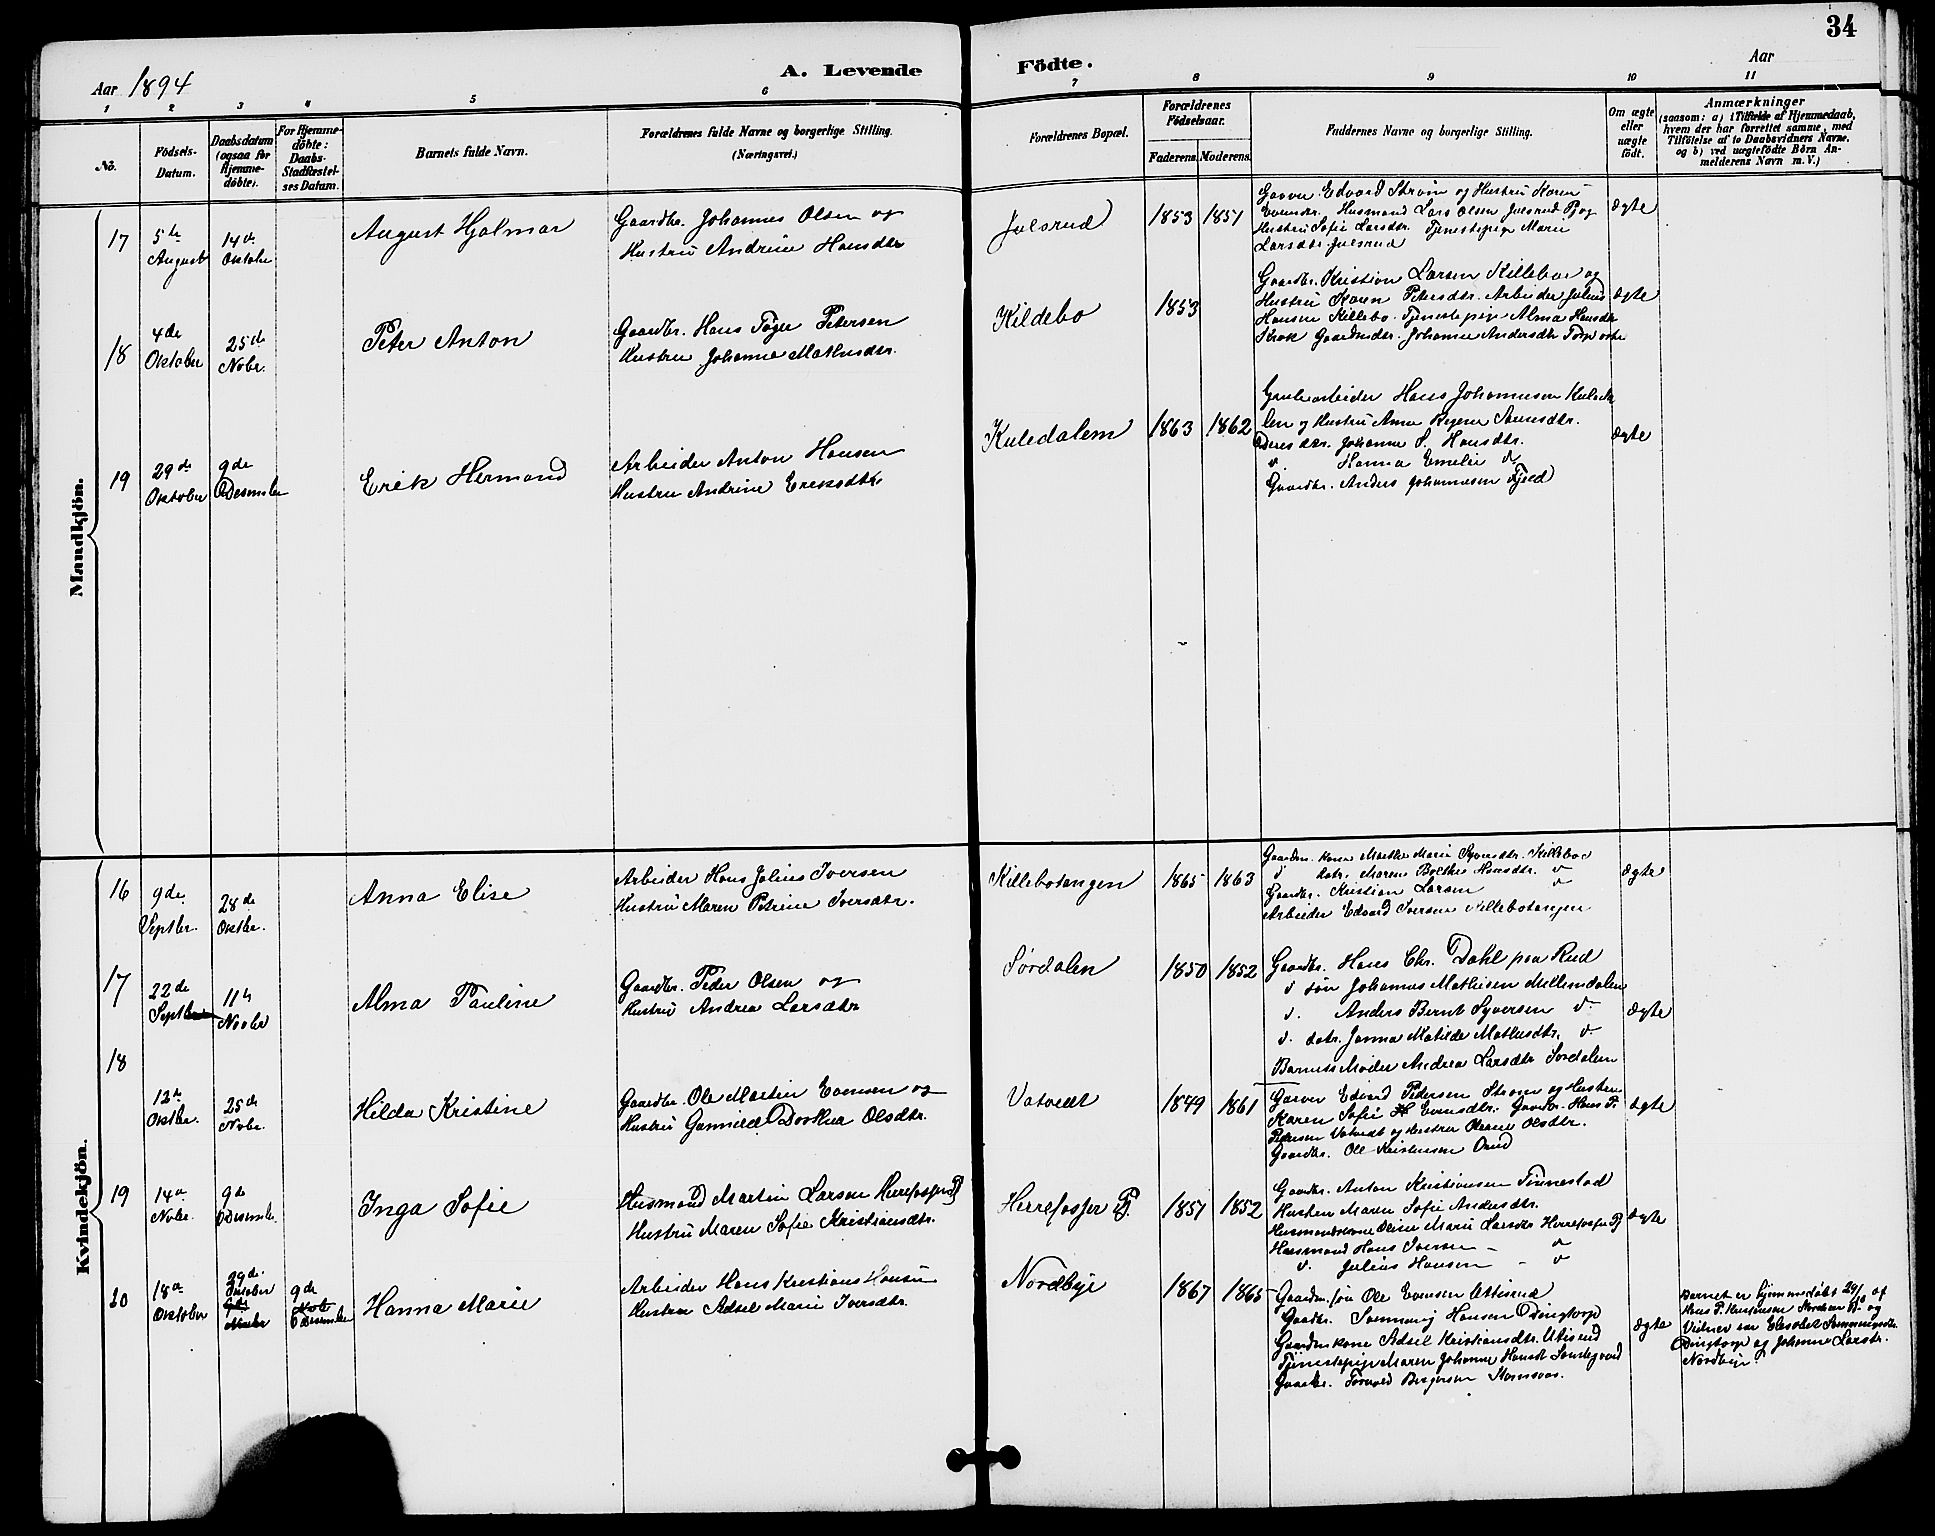 34
Aar 1894
A. Levende Födte.
Aar
1 2 3 4 5 6 7 8 9 10 11
No.
Födsels-Datum.
Daabsdatum (ogsaa for Hjemmedöbte).
For Hjemmedöbte: Daabs-Stadfæstelses Datum.
Barnets fulde Navn.
Forældrenes fulde Navne og borgerlige Stilling.
(Næringsvei.)
Forældrenes Bopæl.
Forældrenes Födselsaar.
Faderens. Moderens.
Faddernes Navne og borgerlige Stilling.
Om ægte eller uægte födt.
Anmærkninger
(saasom: a) i Tilfælde af Hjemmedaab, hvem der har forrettet samme, med Tilföielse af to Daabsvidners Navne, og b) ved uægtefödte Börn Anmelderens Navn m. V.)
Mandkjön.
17
5te August
14de Oktober
August Hjalmar
Gaardbr. Johannes Olsen og
Hustru Andrine Hansdtr
Julsrud
1853 1851
Garver Edvard Strøm og Hustru Karen
Evensdtr. Husmand Lars Olsen Julsrud Pj og
Hustru Sofie Larsdtr. Tjenestepige Maren
Larsdtr Julsrud
Ægte
18
4de Oktober
25de Nobr.
Peter Anton
Gaardbr. Hans Petersen
Hustru Johanne Mathisdtr.
Kildebo
1853
Gaardbr. Kristian Larsen Killebo og
Hustru Karen Petersdtr. Arbeider Julius
Hansen Killebo. Tjenestepige Alma Hansdtr
Krok Gaardmdtr. Johanne Andersdtr Torp
Ægte
19
29de Oktober
9de Desember
Erik Hermand
Arbeider Anton Hansen
Hustru Andrine Eriksdtr
Kuledalem
1863 1862
Hans Johannesen
len og Hustru Anne
Deres dtr. Johanne S. Hansdtr.
Hanna Emelie
Gaardbr. Anders Johannesen Fjeld
Ægte
Kvindekjön.
16
9de Septbr.
28de Oktbr.
Anna Elise
Arbeider Hans Julius Iversen
Hustru Maren Petrine Iversdtr.
Killebotangen
1865 1863
Gaardm. kone Marthe Marie Syversdtr. Killebo
datr. Maren Hansdtr.
Gaardbr. Kristian Larsen
Arbeider Edvard Iversen Killebotangen
Ægte
17
22de Septbr
11te Novbr
Alma Pauline
Gaardbr. Peder Olsen og
Hustru Andrea Larsdtr
Sørdalen
1850 1852
Gaardbr. Hans Chr. Dahl paa Rud
søn Johannes Mathisen Mellemdalen
Anders Bernt Syversen
datr. Janna Matilde Mathisdtr.
Barnets Moder Andrea Larsdtr Sørdalen
Ægte
18
12te Oktbr.
25de Nobr.
Hilda Kristine
Gaardbr. Ole Martin Evensen og
Hustru Gunnild Dorthea Olsdtr.
Vatvedt
1849 1861
Garver Edvard Petersen Strøm og Hustru
Karen Sofie Evensdtr. Gaardbr. Hans P.
Petersen Vatvedt og Hustru Oleane Olsdtr.
Gaardbr. Ole Kristensen
Ægte
19
14de Nobr.
9de Desember
Inga Sofie
Husmand Martin Larsen Herrefosser Pj
Hustru Maren Sofie Kristiansdtr.
Herrefosser Pj.
1857 1852
Gaardbr. Anton Kristiansen Tinnestad
Hustru Maren Sofie Andersdtr.
Husmandskone Oline Marie Larsdtr Herrefosser Pj
Husmand Hans Iversen
Julius Hansen
Ægte
20
18de Oktober
29de Oktober
9de Desember
Hanna Marie
Arbeider Hans Kristians Hansen
Hustru Adsel Marie Iversdtr.
Nordbye
1867 1865
Gaardm. søn Ole Evensen Uttisrud
Gaardbr. Svenning Hansen Dingtorp
Gaardm. kone Adsel Kristiansdtr. Utisrud
Tjenestepige Maren Johanne Hansdt
Gaardbr. Torvald Birgersen
Ægte
Barnet er hjemmedøbt 29/10 af
Hans P. og
Vidner var Elisabet Svenningsdtr
Dingtorp og Johanne Larsdtr.
Nordbye